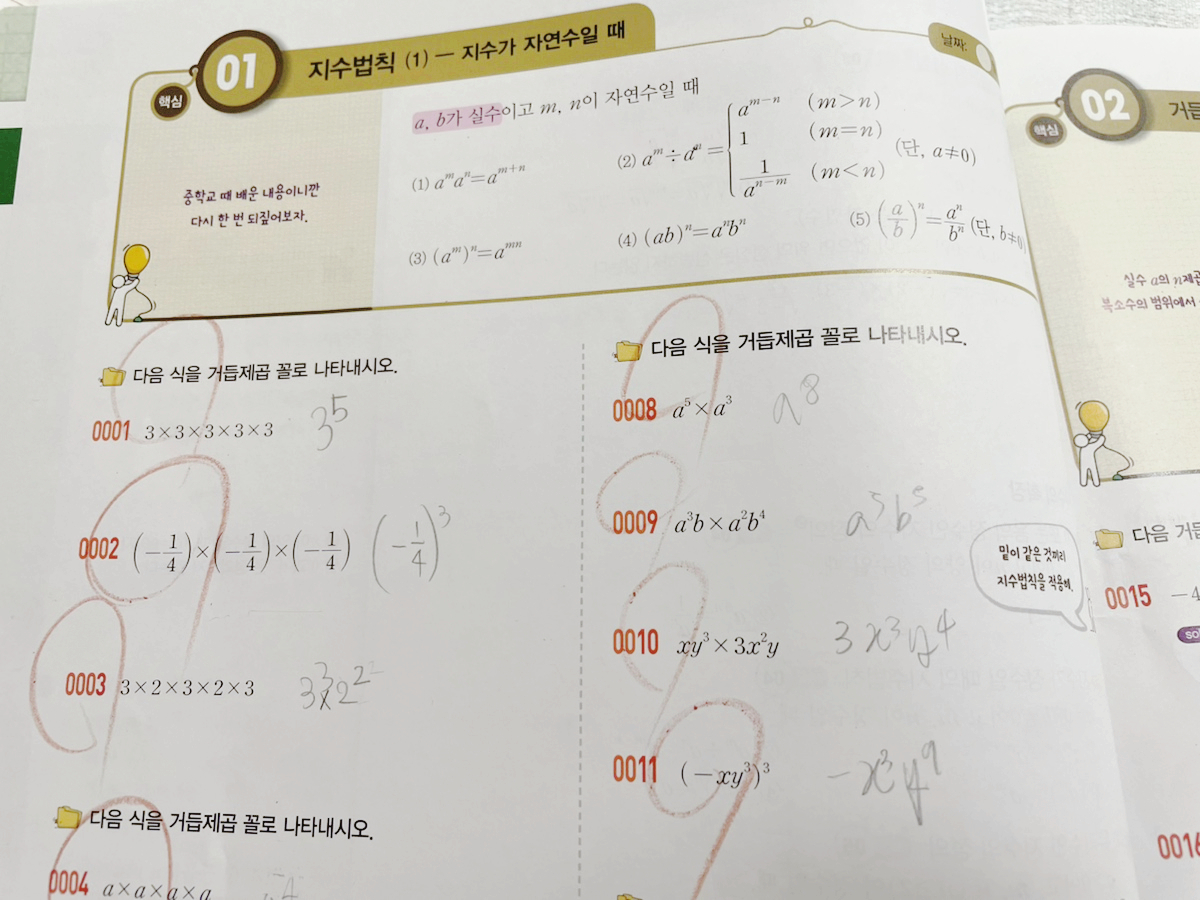 01 지수법칙 (1) — 지수가 자연수일 때
날짜:
핵심
중학교 때 배운 내용이니깐
다시 한 번 되짚어보자.
a, b가 실수이고 m, n이 자연수일 때
(1) aᵐaⁿ=aᵐ⁺ⁿ
(2) aᵐ÷aⁿ= { aᵐ⁻ⁿ (m>n)
1 (m=n)
1/aⁿ⁻ᵐ (m<n) (단, a≠0)
(3) (aᵐ)ⁿ=aᵐⁿ
(4) (ab)ⁿ=aⁿbⁿ
(5) (a/b)ⁿ=aⁿ/bⁿ (단, b≠0)
다음 식을 거듭제곱 꼴로 나타내시오.
0001 3×3×3×3×3 3⁵
0002 (-1/4)×(-1/4)×(-1/4) (-1/4)³
0003 3×2×3×2×3 3³×2²
다음 식을 거듭제곱 꼴로 나타내시오.
0004 a×a×a×a
다음 식을 거듭제곱 꼴로 나타내시오.
0008 a⁵×a³ a⁸
0009 a³b×a²b⁴ a⁵b⁵
밑이 같은 것끼리
지수법칙을 적용해.
0010 xy³×3x²y 3x³y⁴
0011 (-xy³)³ -x³y⁹
02
핵심
실수 a의 n제곱
복소수의 범위에서
다음
0015 -4
0016